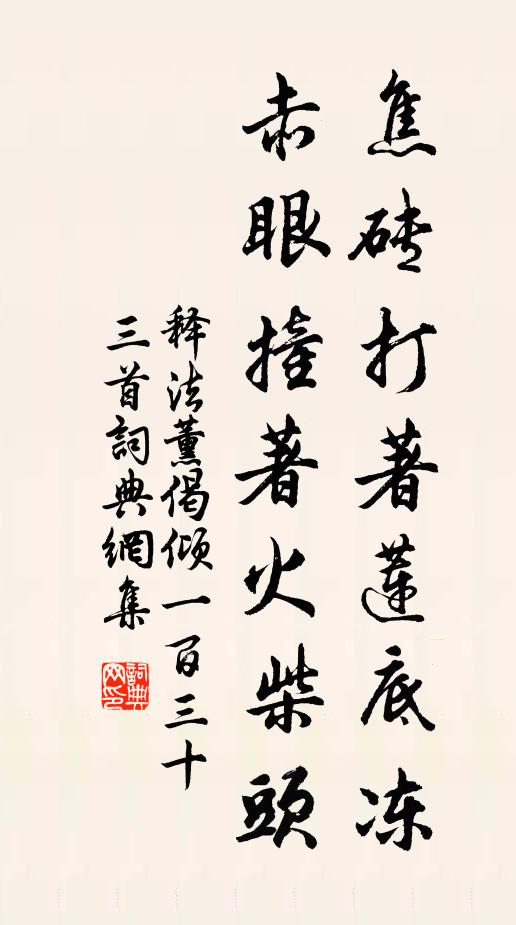 焦砖打著蓮底冻
赤眼撞著火柴頭
释法薰偈倾一百三十
三首詞典網集
詞典网印